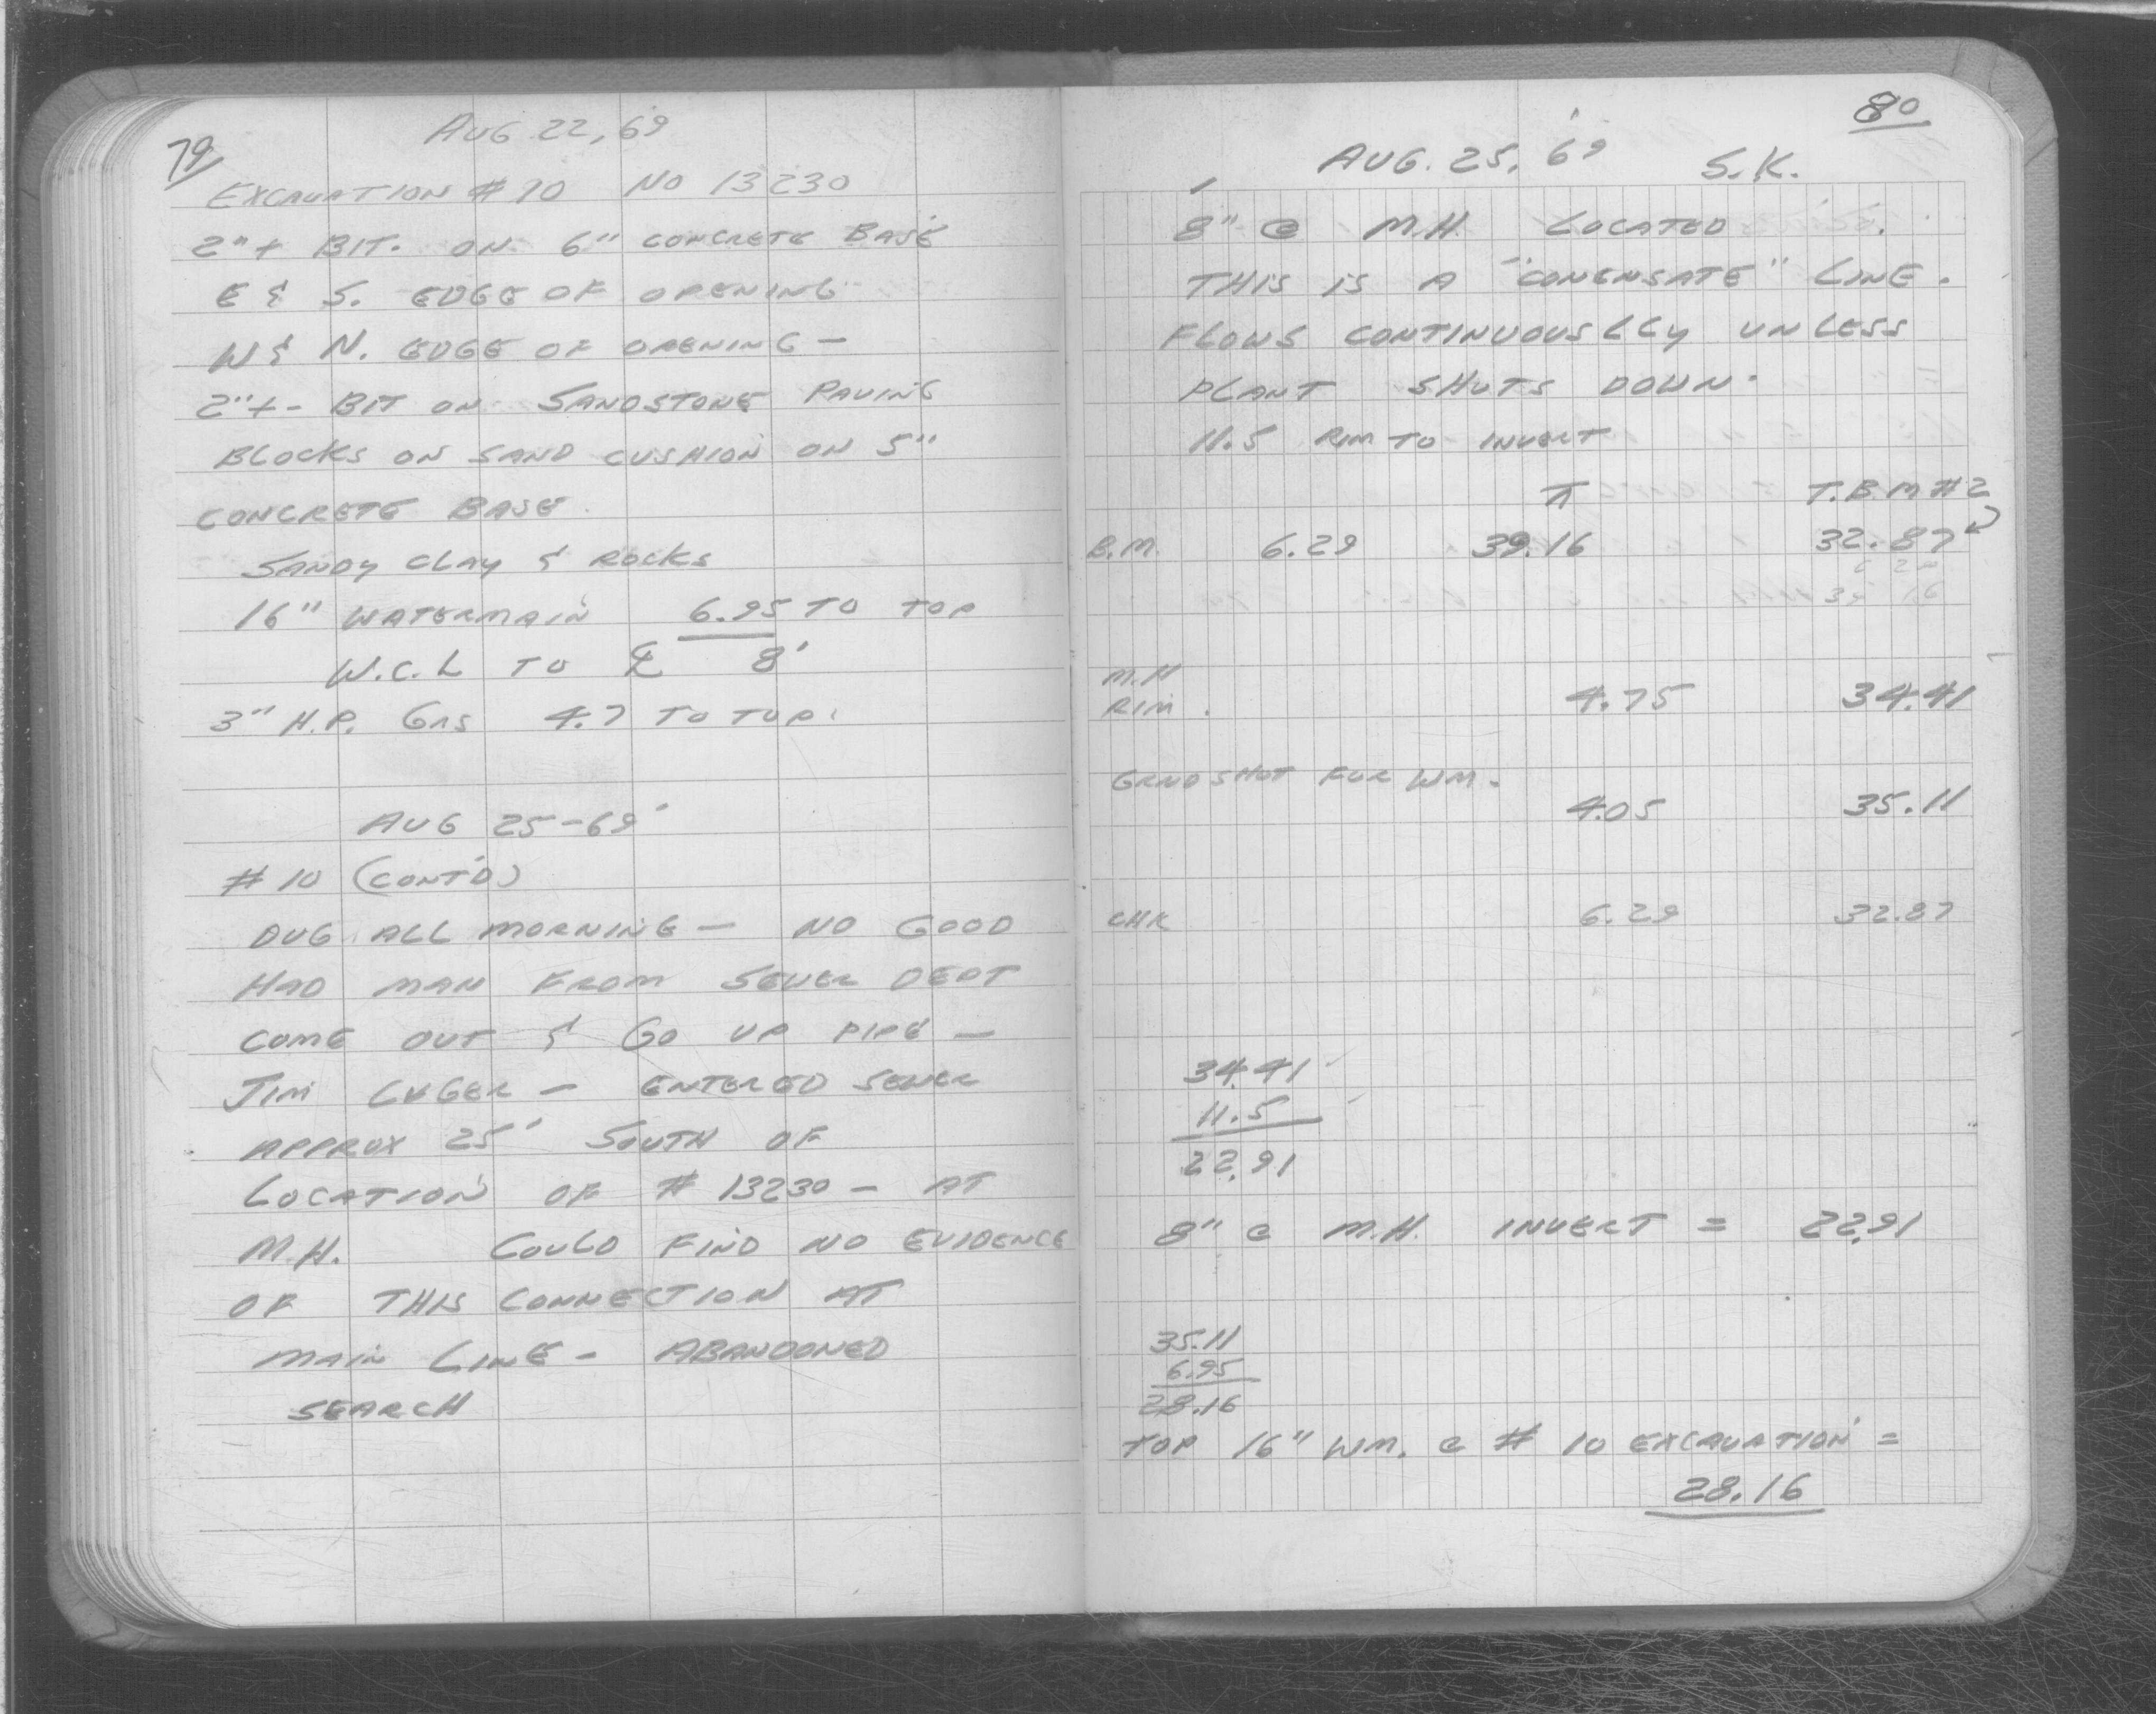 79
AUG 22, 69
EXCAVATION #10 NO 13230
2"+ BIT. ON 6" CONCRETE BASE
E & S. EDGE OF OPENING
W & N. EDGE OF OPENING —
2"+- BIT ON SANDSTONE PAVING
BLOCKS ON SAND CUSHION ON 5"
CONCRETE BASE.
SANDY CLAY & ROCKS
16" WATERMAIN 6.95 TO TOP
W.C.L TO ℄ 8'
3" H.P. GAS 4.7 TO TOP.
AUG 25-69
#10 (CONT'D)
DUG ALL MORNING — NO GOOD
HAD MAN FROM SEWER DEPT
COME OUT & GO UP PIPE —
JIM LUGER — ENTERED SEWER
APPROX 25' SOUTH OF
LOCATION OF #13230 — AT
M.H. COULD FIND NO EVIDENCE
OF THIS CONNECTION AT
MAIN LINE - ABANDONED
SEARCH
80
AUG. 25, 69 S.K.
8" @ M.H. LOCATED.
THIS IS A "CONENSATE" LINE.
FLOWS CONTINUOUSLLY UNLESS
PLANT SHUTS DOWN.
11.5 RIM TO INVERT
⊼ T.B.M #2
B.M. 6.29 39.16 32.87
M.H
RIM. 4.75 34.41
GRND SHOT FOR WM.
4.05 35.11
CHK 6.29 32.87
34.41
11.5
22.91
8" @ M.H. INVERT = 22.91
35.11
6.95
28.16
TOP 16" WM. @ #10 EXCAVATION =
28.16